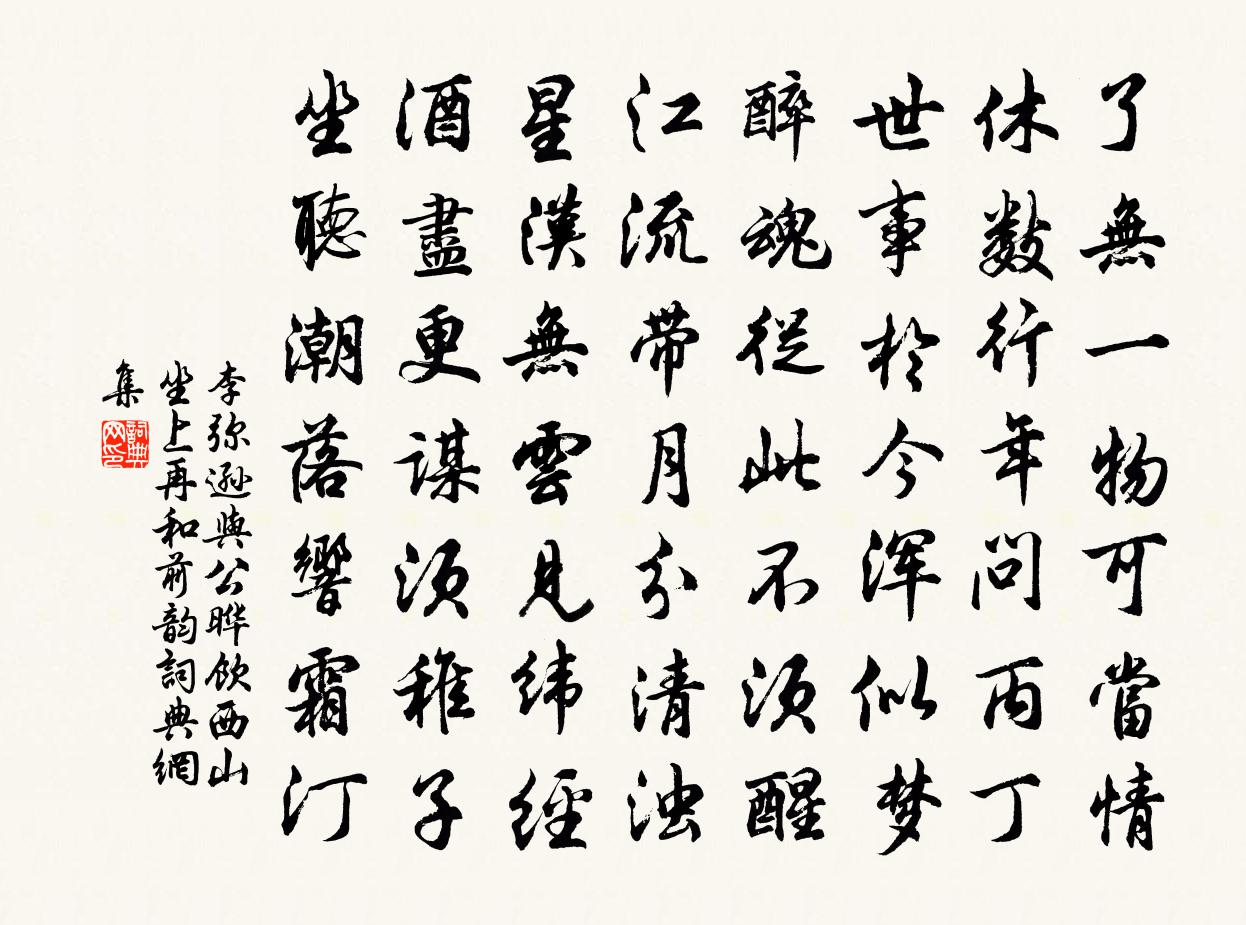 了無一物可當情
休數行年問丙丁
世事於今渾似梦
醉魂從此不須醒
江流帶月分清浊
星漢無雲見緯經
酒盡更謀須稚子
坐聽潮落響霜汀
李弥遜與公曄飲西山
坐上再和前韵詞典網
集
詞典網印